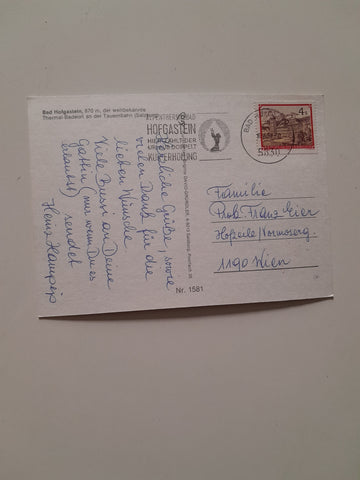 Bad Hofgastein, 870 m, der weltbekannte
Thermal-Badeort an der Tauernbahn
HOFGASTEIN
HIER ZÄHLT DER
URLAUB DOPPELT
KUR + ERHOLUNG
BAD HOFG
5630
4
Herzliche Grüße, sowie
vielen Dank für die
lieben Wünsche
Viele Bussi an Deine
Gattin (nur wenn Du es
erlaubst) sendet
Heinz
Nr. 1581
Familie
Franz
1190 Wien